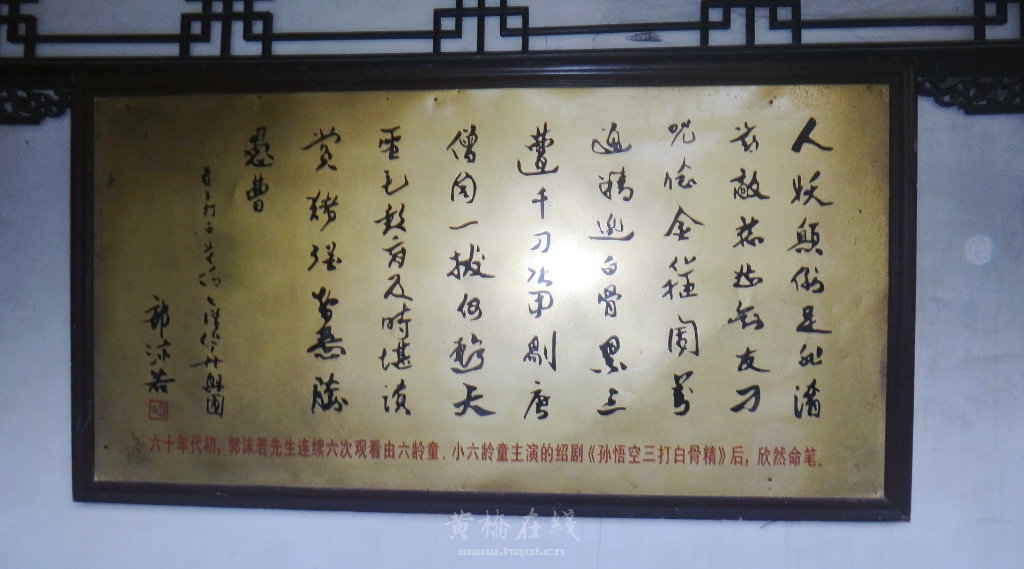 人妖顛倒是非淆
对敵慈悲对友刁
咒念金箍闻萬
遍精逃白骨累三
遭千刀当剮唐
僧肉一拔何虧大
聖毛教育及時堪讚
賞豬猶智慧勝
愚曹
郭沫若
六十年代初，郭沫若先生连续六次观看由六龄童、小六龄童主演的绍剧《孙悟空三打白骨精》后，欣然命笔。
黄桥在线
www.hqol.cn